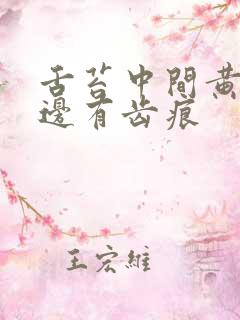 舌苔中間黄
邊有齿痕
王宏維